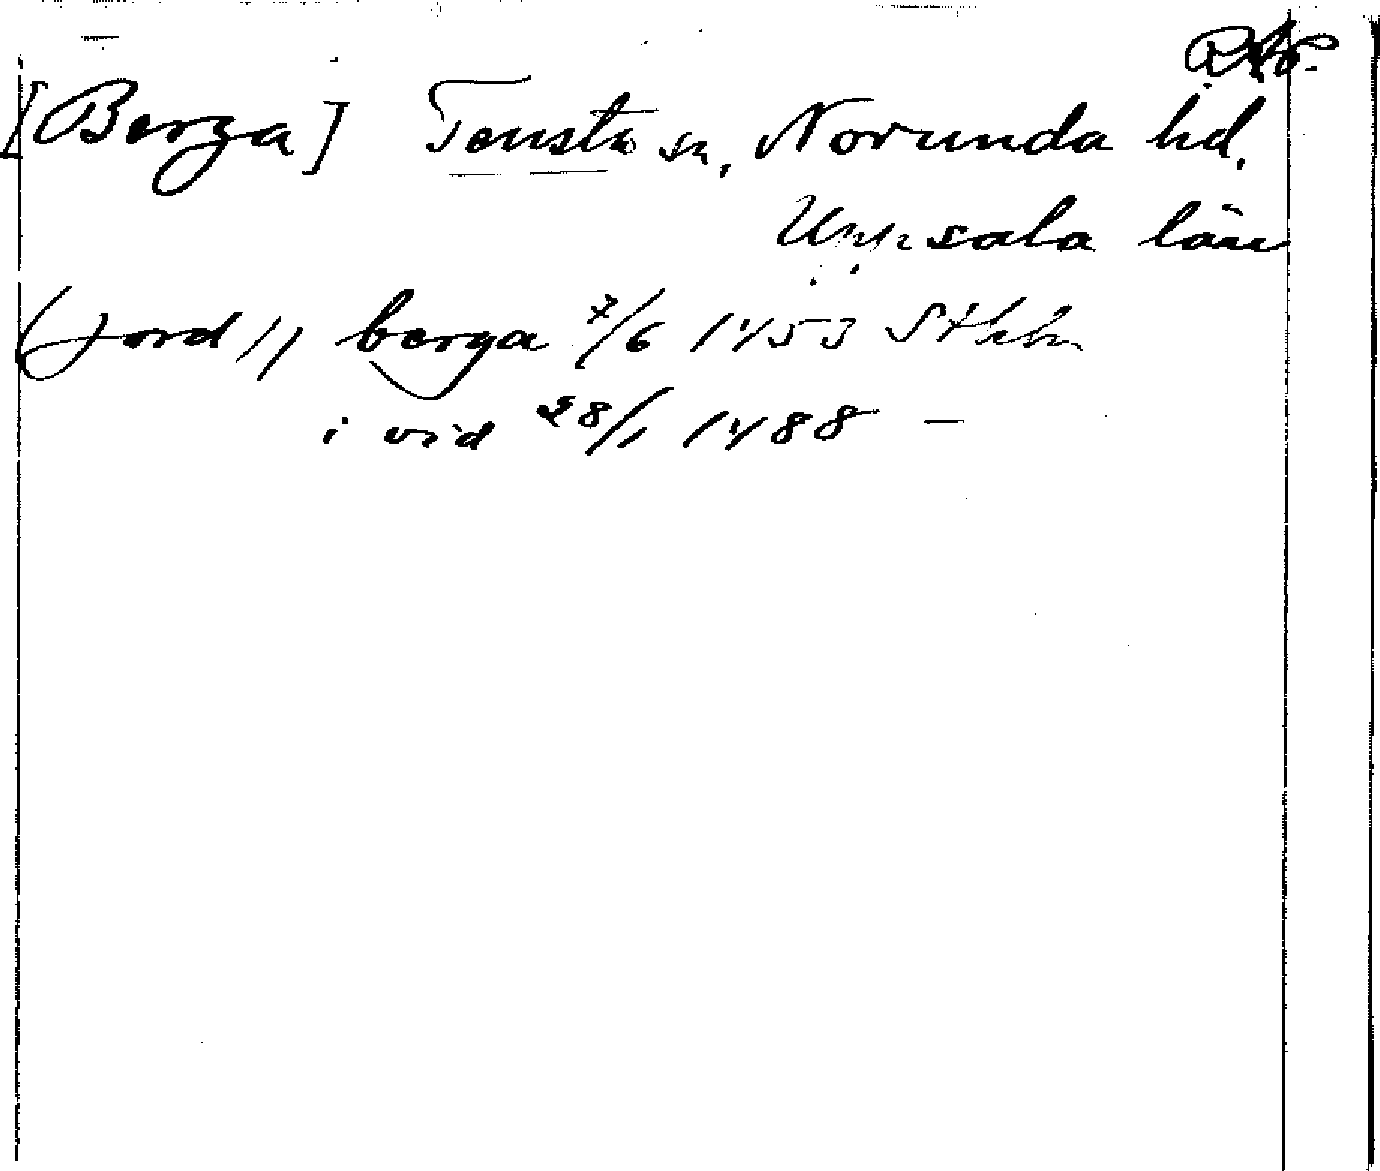 RAp.
[Berga] Tensta sn, Norunda hd,
Uppsala län
(jord) i berga 7/6 1453 Sthlm
i vid 28/1 1488 —